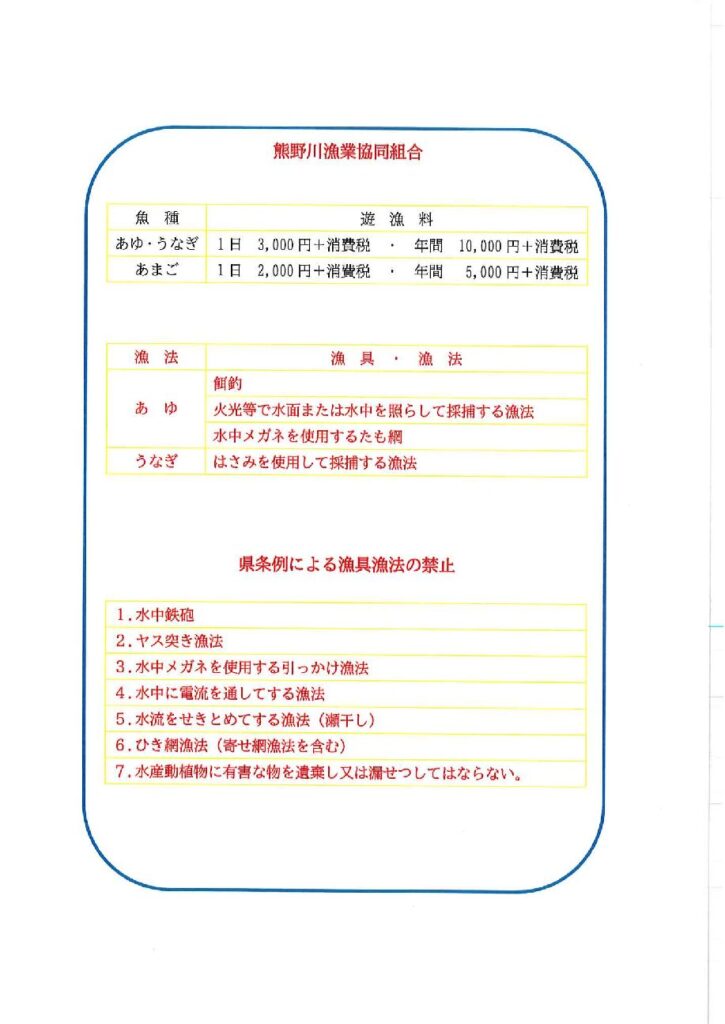 熊野川漁業協同組合
魚種 遊漁料
あゆ・うなぎ 1日 3,000円+消費税 ・ 年間 10,000円+消費税
あまご 1日 2,000円+消費税 ・ 年間 5,000円+消費税
漁法 漁具・漁法
あゆ 餌釣
火光等で水面または水中を照らして採捕する漁法
水中メガネを使用するたも網
うなぎ はさみを使用して採捕する漁法
県条例による漁具漁法の禁止
1.水中鉄砲
2.ヤス突き漁法
3.水中メガネを使用する引っかけ漁法
4.水中に電流を通してする漁法
5.水流をせきとめてする漁法（瀬干し）
6.ひき網漁法（寄せ網漁法を含む）
7.水産動植物に有害な物を遺棄し又は漏せつしてはならない。